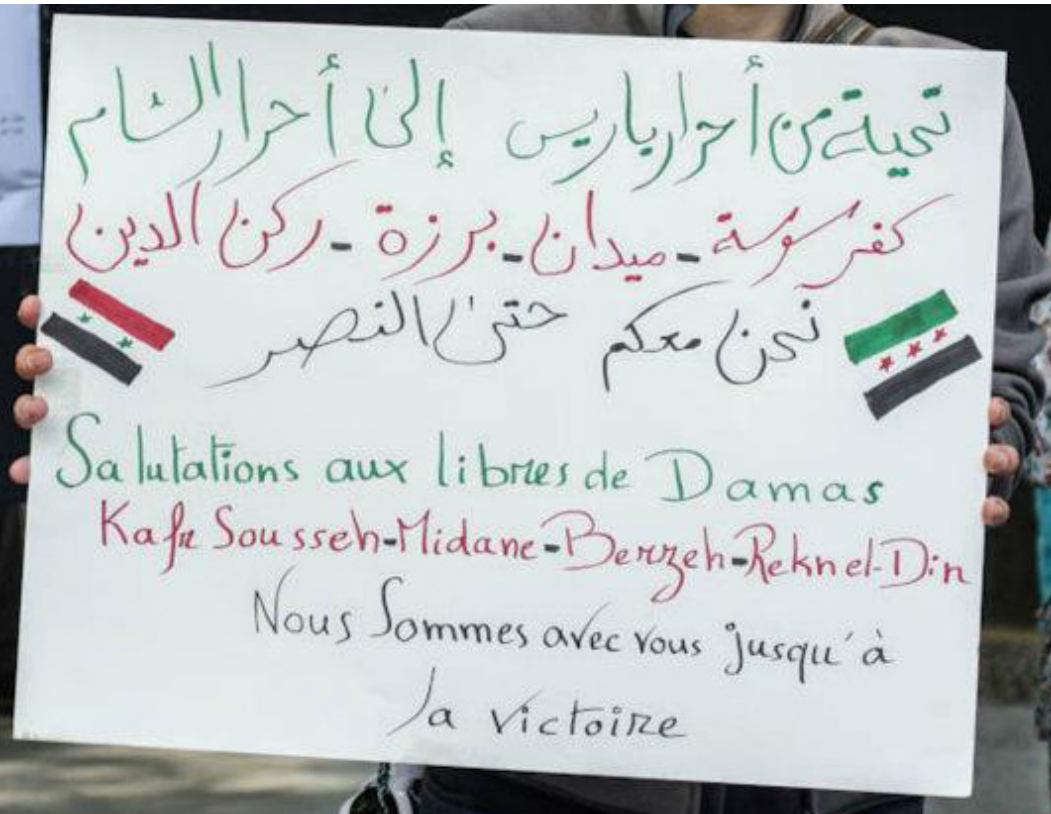 تحية من أحرار باريس إلى أحرار الشام
كفرسوسة - ميدان - برزة - ركن الدين
نحن معكم حتى النصر
Salutations aux libres de Damas
Kafr Sousseh-Midane-Berzeh-Reknel-Din
Nous Sommes avec vous jusqu'à
la victoire